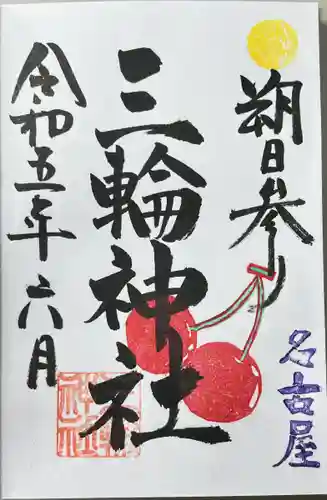 朔日参り
三輪神社
令和五年六月
名古屋